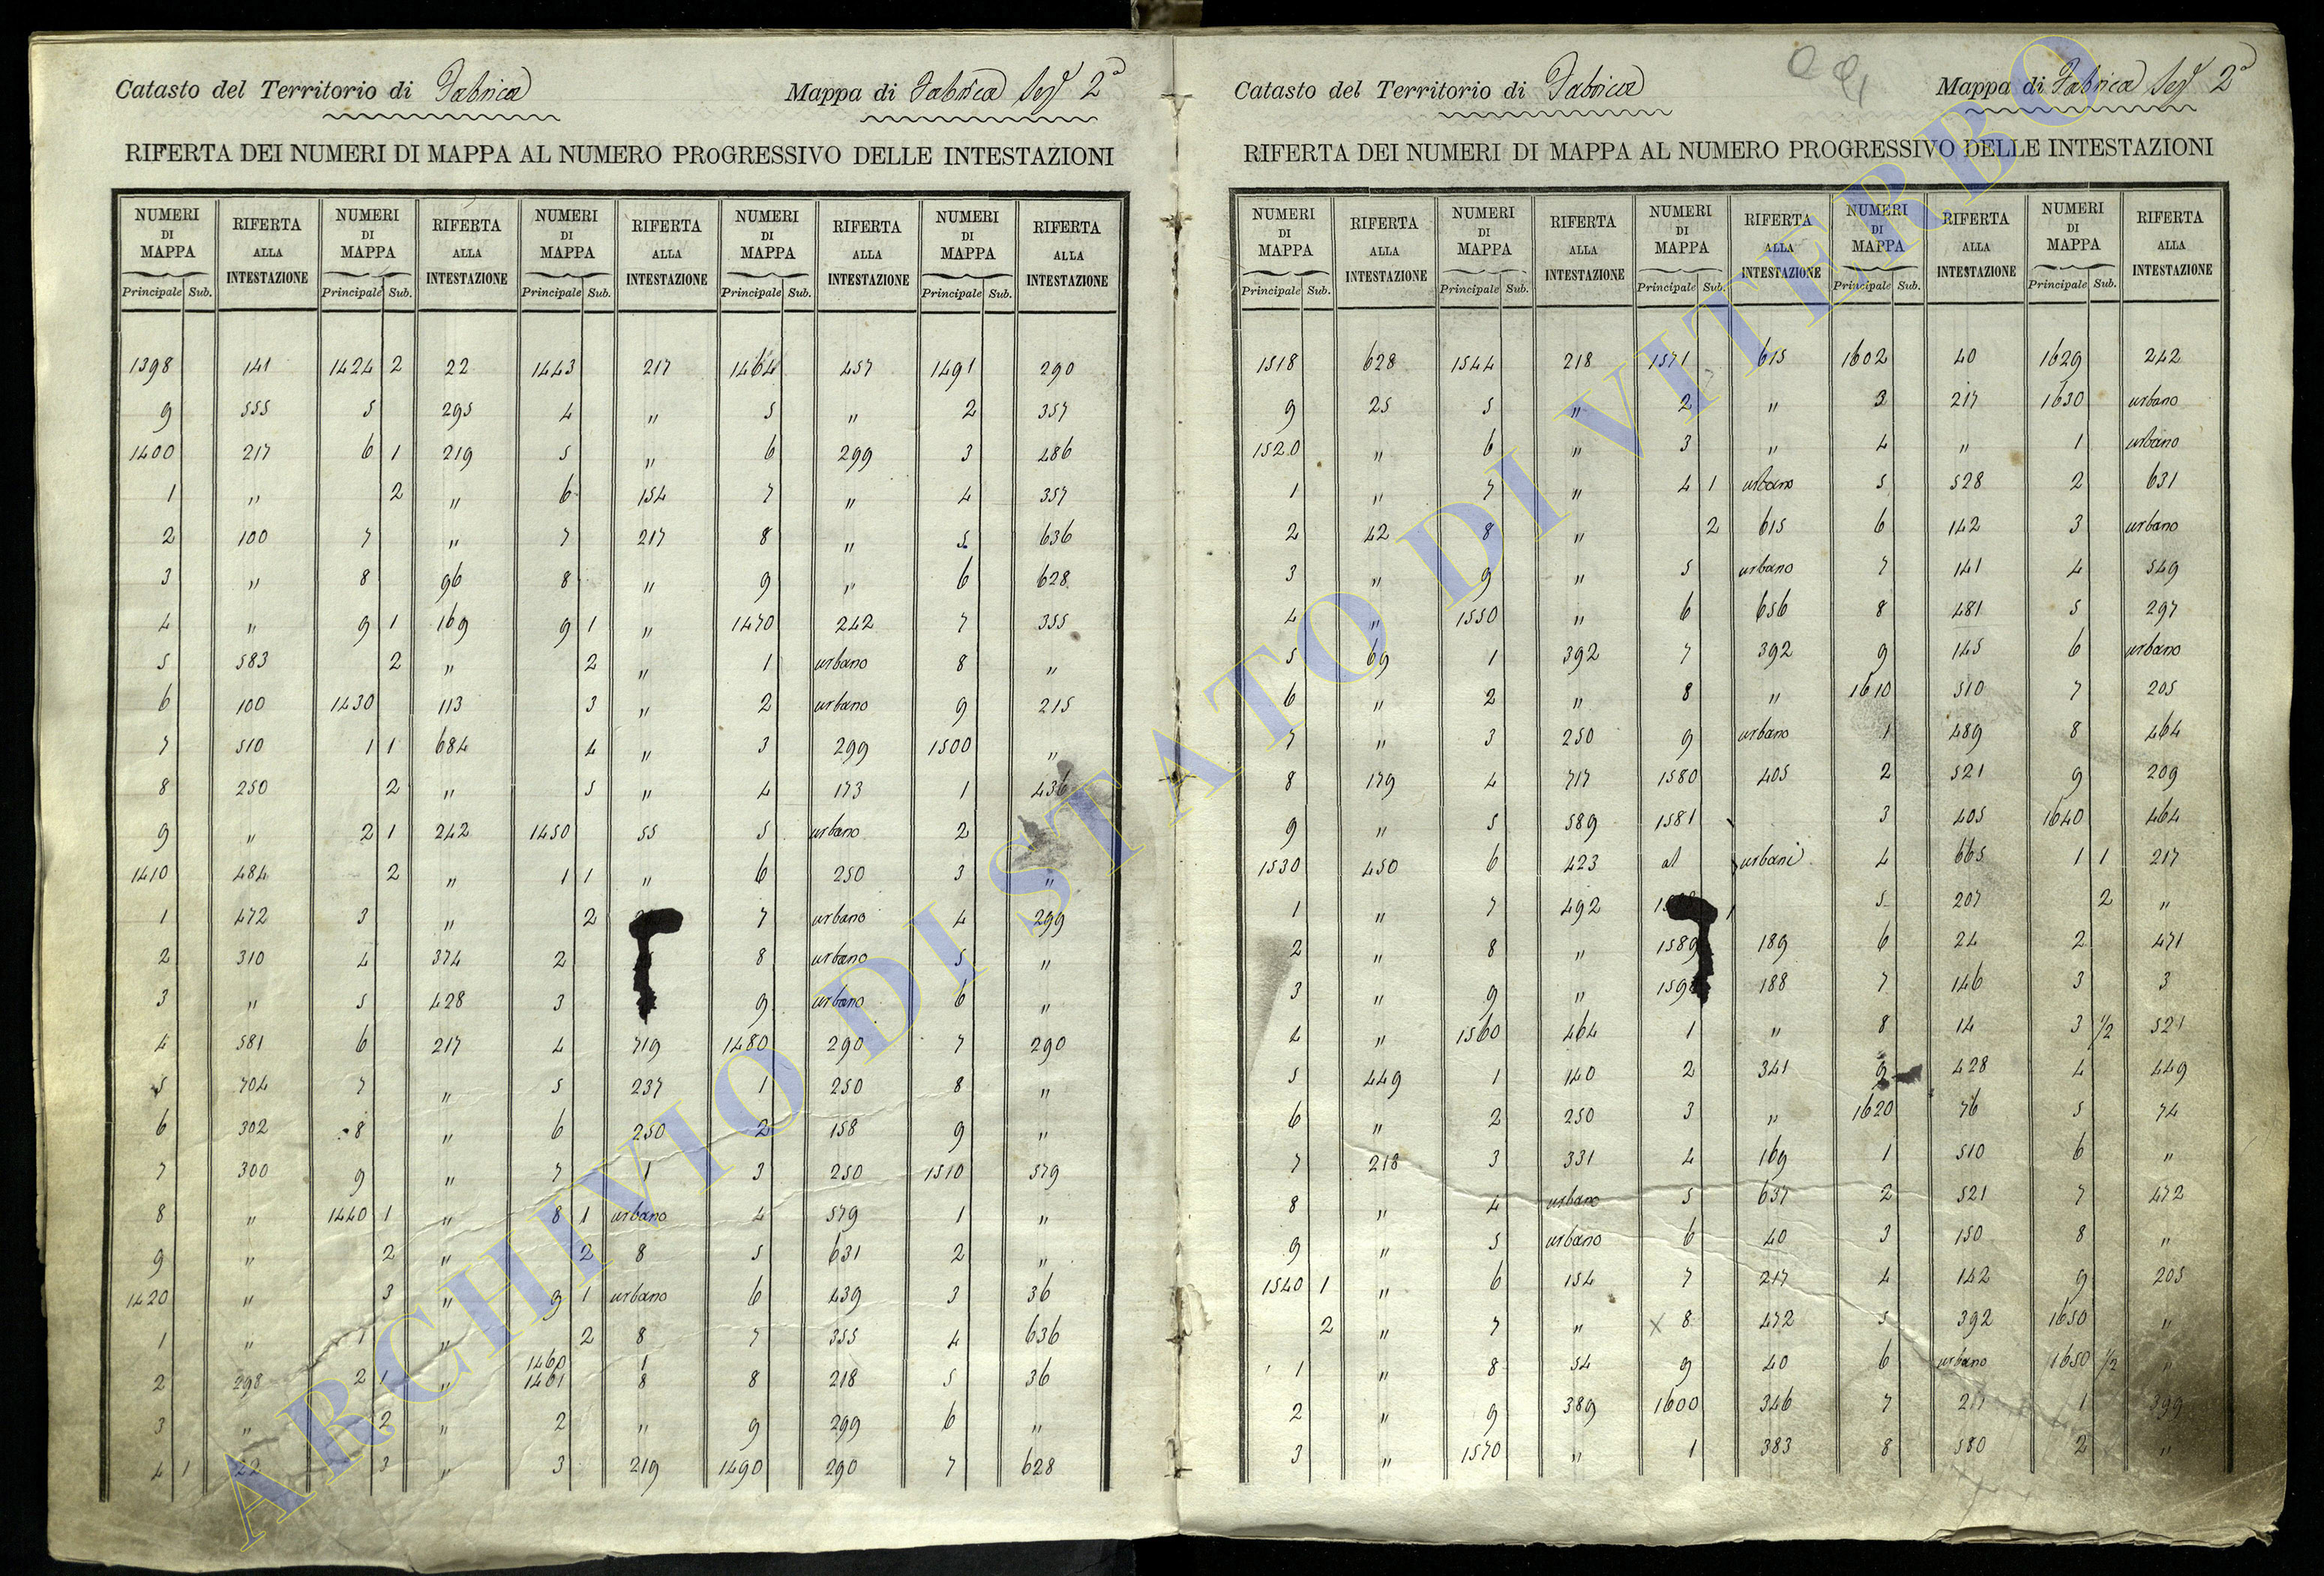 Catasto del Territorio di Fabrica Mappa di Fabrica Sez 2ª
RIFERTA DEI NUMERI DI MAPPA AL NUMERO PROGRESSIVO DELLE INTESTAZIONI
NUMERI DI MAPPA RIFERTA ALLA INTESTAZIONE NUMERI DI MAPPA RIFERTA ALLA INTESTAZIONE NUMERI DI MAPPA RIFERTA ALLA INTESTAZIONE NUMERI DI MAPPA RIFERTA ALLA INTESTAZIONE NUMERI DI MAPPA RIFERTA ALLA INTESTAZIONE
Principale Sub. Principale Sub. Principale Sub. Principale Sub. Principale Sub.
1398 141 1424 2 22 1443 217 1464 457 1491 290
9 555 5 295 4 " 5 " 2 357
1400 217 6 1 219 5 " 6 299 3 486
1 " 2 " 6 154 7 " 4 357
2 100 7 " 7 217 8 " 5 636
3 " 8 96 8 " 9 " 6 628
4 " 9 1 169 9 1 " 1470 242 7 355
5 583 2 " 2 " 1 urbano 8 "
6 100 1430 113 3 " 2 urbano 9 215
7 510 1 1 684 4 " 3 299 1500 "
8 250 2 " 5 " 4 173 1 436
9 " 2 1 242 1450 55 5 urbano 2
1410 484 2 " 1 1 " 6 250 3 "
1 472 3 " 2 7 urbano 4 299
2 310 4 374 2 8 urbano 5 "
3 " 5 428 3 9 urbano 6 "
4 581 6 217 4 719 1480 290 7 290
5 704 7 " 5 237 1 250 8 "
6 302 8 " 6 250 2 158 9 "
7 300 9 " 7 1 3 250 1510 579
8 " 1440 1 " 8 1 urbano 4 579 1 "
9 " 2 " 2 8 5 631 2 "
1420 " 3 " 9 1 urbano 6 439 3 36
1 " 1 " 2 8 7 355 4 636
1460 1
2 298 2 1 " 1461 8 8 218 5 36
3 " 2 " 2 " 9 299 6 "
4 1 22 3 " 3 219 1490 290 7 628
Catasto del Territorio di Fabrica Mappa di Fabrica Sez 2ª
RIFERTA DEI NUMERI DI MAPPA AL NUMERO PROGRESSIVO DELLE INTESTAZIONI
NUMERI DI MAPPA RIFERTA ALLA INTESTAZIONE NUMERI DI MAPPA RIFERTA ALLA INTESTAZIONE NUMERI DI MAPPA RIFERTA ALLA INTESTAZIONE NUMERI DI MAPPA RIFERTA ALLA INTESTAZIONE NUMERI DI MAPPA RIFERTA ALLA INTESTAZIONE
Principale Sub. Principale Sub. Principale Sub. Principale Sub. Principale Sub.
1518 628 1544 218 1571 615 1602 40 1629 242
9 25 5 " 2 " 3 217 1630 urbano
1520 " 6 " 3 " 4 " 1 urbano
1 " 7 " 4 1 urbano 5 528 2 631
2 42 8 " 2 615 6 142 3 urbano
3 " 9 " 5 urbano 7 141 4 549
4 " 1550 " 6 656 8 481 5 297
5 69 1 392 7 392 9 145 6 urbano
6 " 2 " 8 " 1610 510 7 205
7 " 3 250 9 urbano 1 489 8 464
8 179 4 717 1580 405 2 521 9 209
9 " 5 589 1581 3 405 1640 464
1530 450 6 423 al urbani 4 665 1 1 217
1 " 7 492 5 207 2 "
2 " 8 " 1589 189 6 24 2 471
3 " 9 " 188 7 146 3 3
4 " 1560 464 1 " 8 14 3 1/2 521
5 449 1 140 2 341 9 428 4 449
6 " 2 250 3 " 1620 76 5 74
7 218 3 331 4 169 1 510 6 "
8 " 4 urbano 5 637 2 521 7 472
9 " 5 urbano 6 40 3 150 8 "
1540 1 " 6 154 7 217 4 142 9 205
2 " 7 " x 8 472 5 392 1650 "
1 " 8 54 9 40 6 urbano 1650 1/2 "
2 " 9 389 1600 346 7 217 1 399
3 " 1570 " 1 383 8 580 2 "
ARCHIVIO DI STATO DI VITERBO